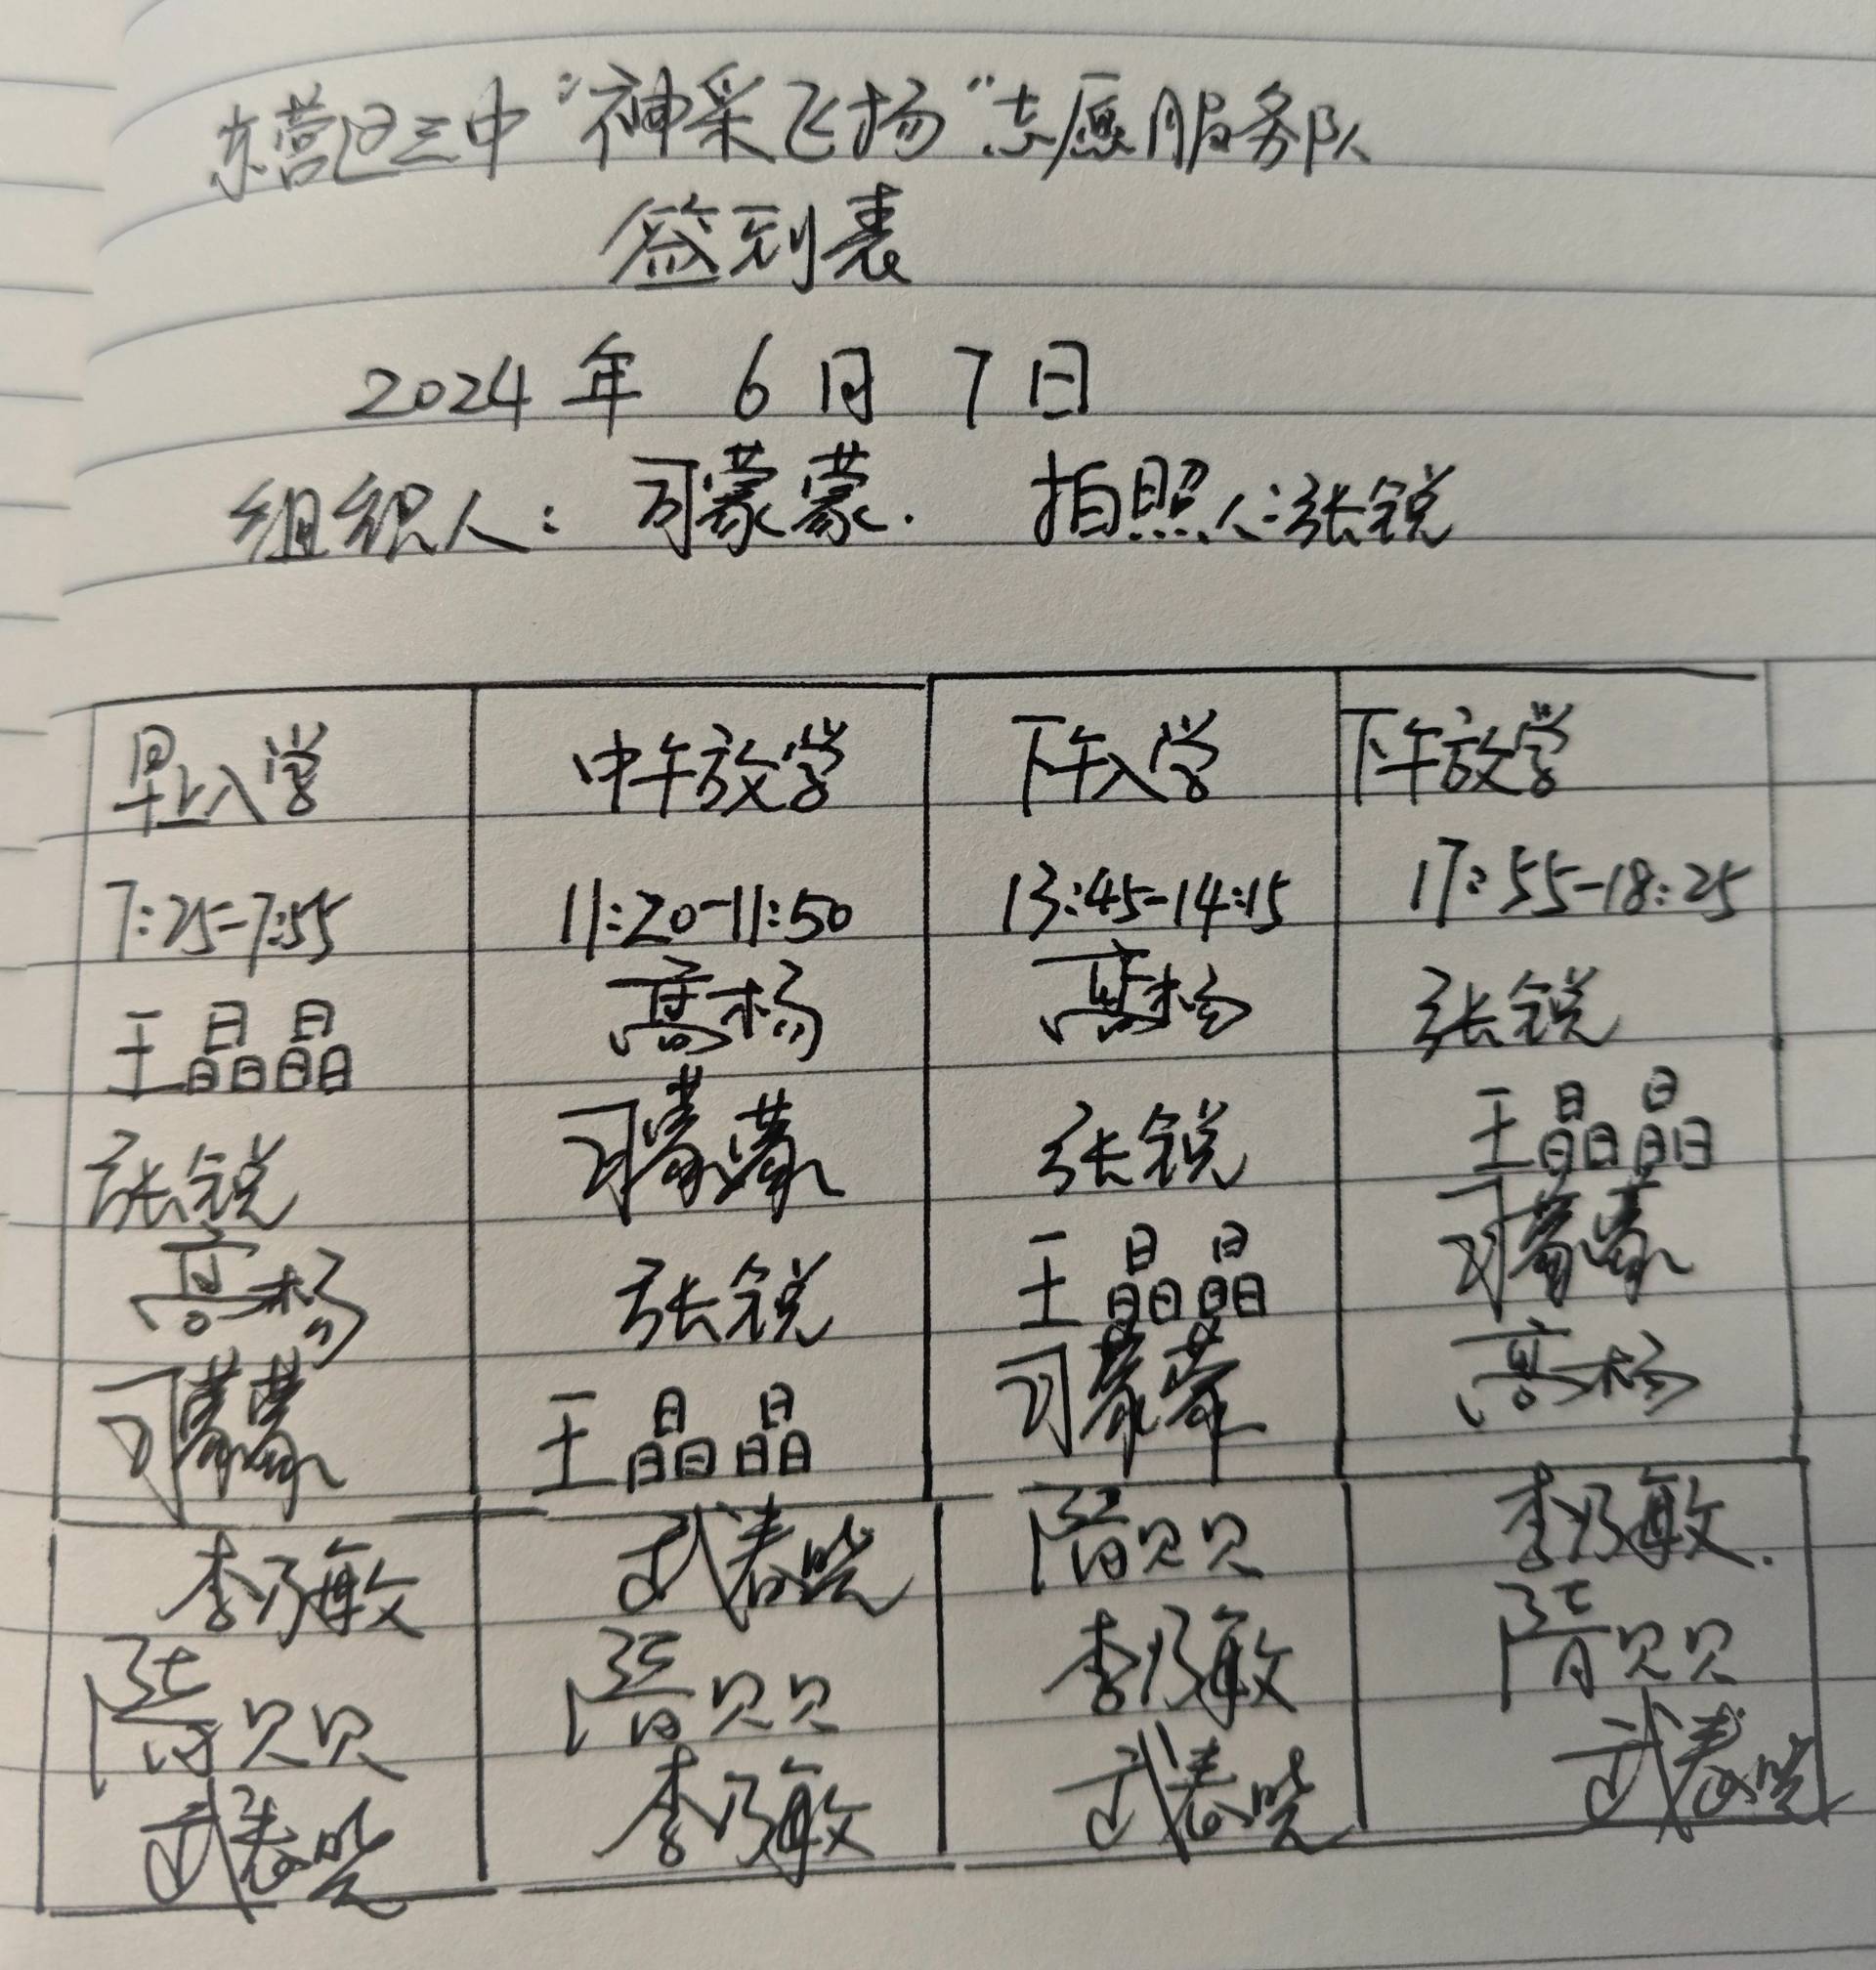 东营区三中“神采飞扬”志愿服务队
签到表
2024年 6月 7日
组织人：司蒙蒙. 拍照人：张锐
早上入学 中午放学 下午入学 下午放学
7:25-7:55 11:20-11:50 13:45-14:15 17:55-18:25
王晶晶 高杨 高杨 张锐
张锐 司蒙蒙 张锐 王晶晶
高杨 张锐 王晶晶 司蒙蒙
司蒙蒙 王晶晶 司蒙蒙 高杨
李乃敏 武春晓 隋贝贝 李乃敏.
隋贝贝 隋贝贝 李乃敏 隋贝贝
武春晓 李乃敏 武春晓 武春晓